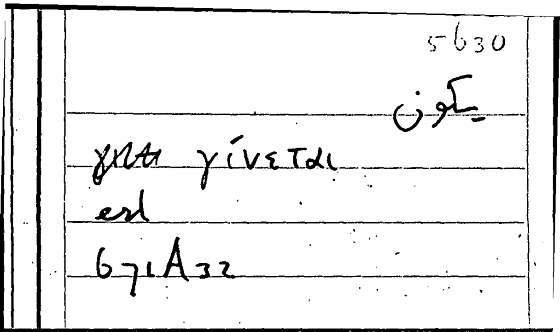 5630
يكون
γίνεται
671A32